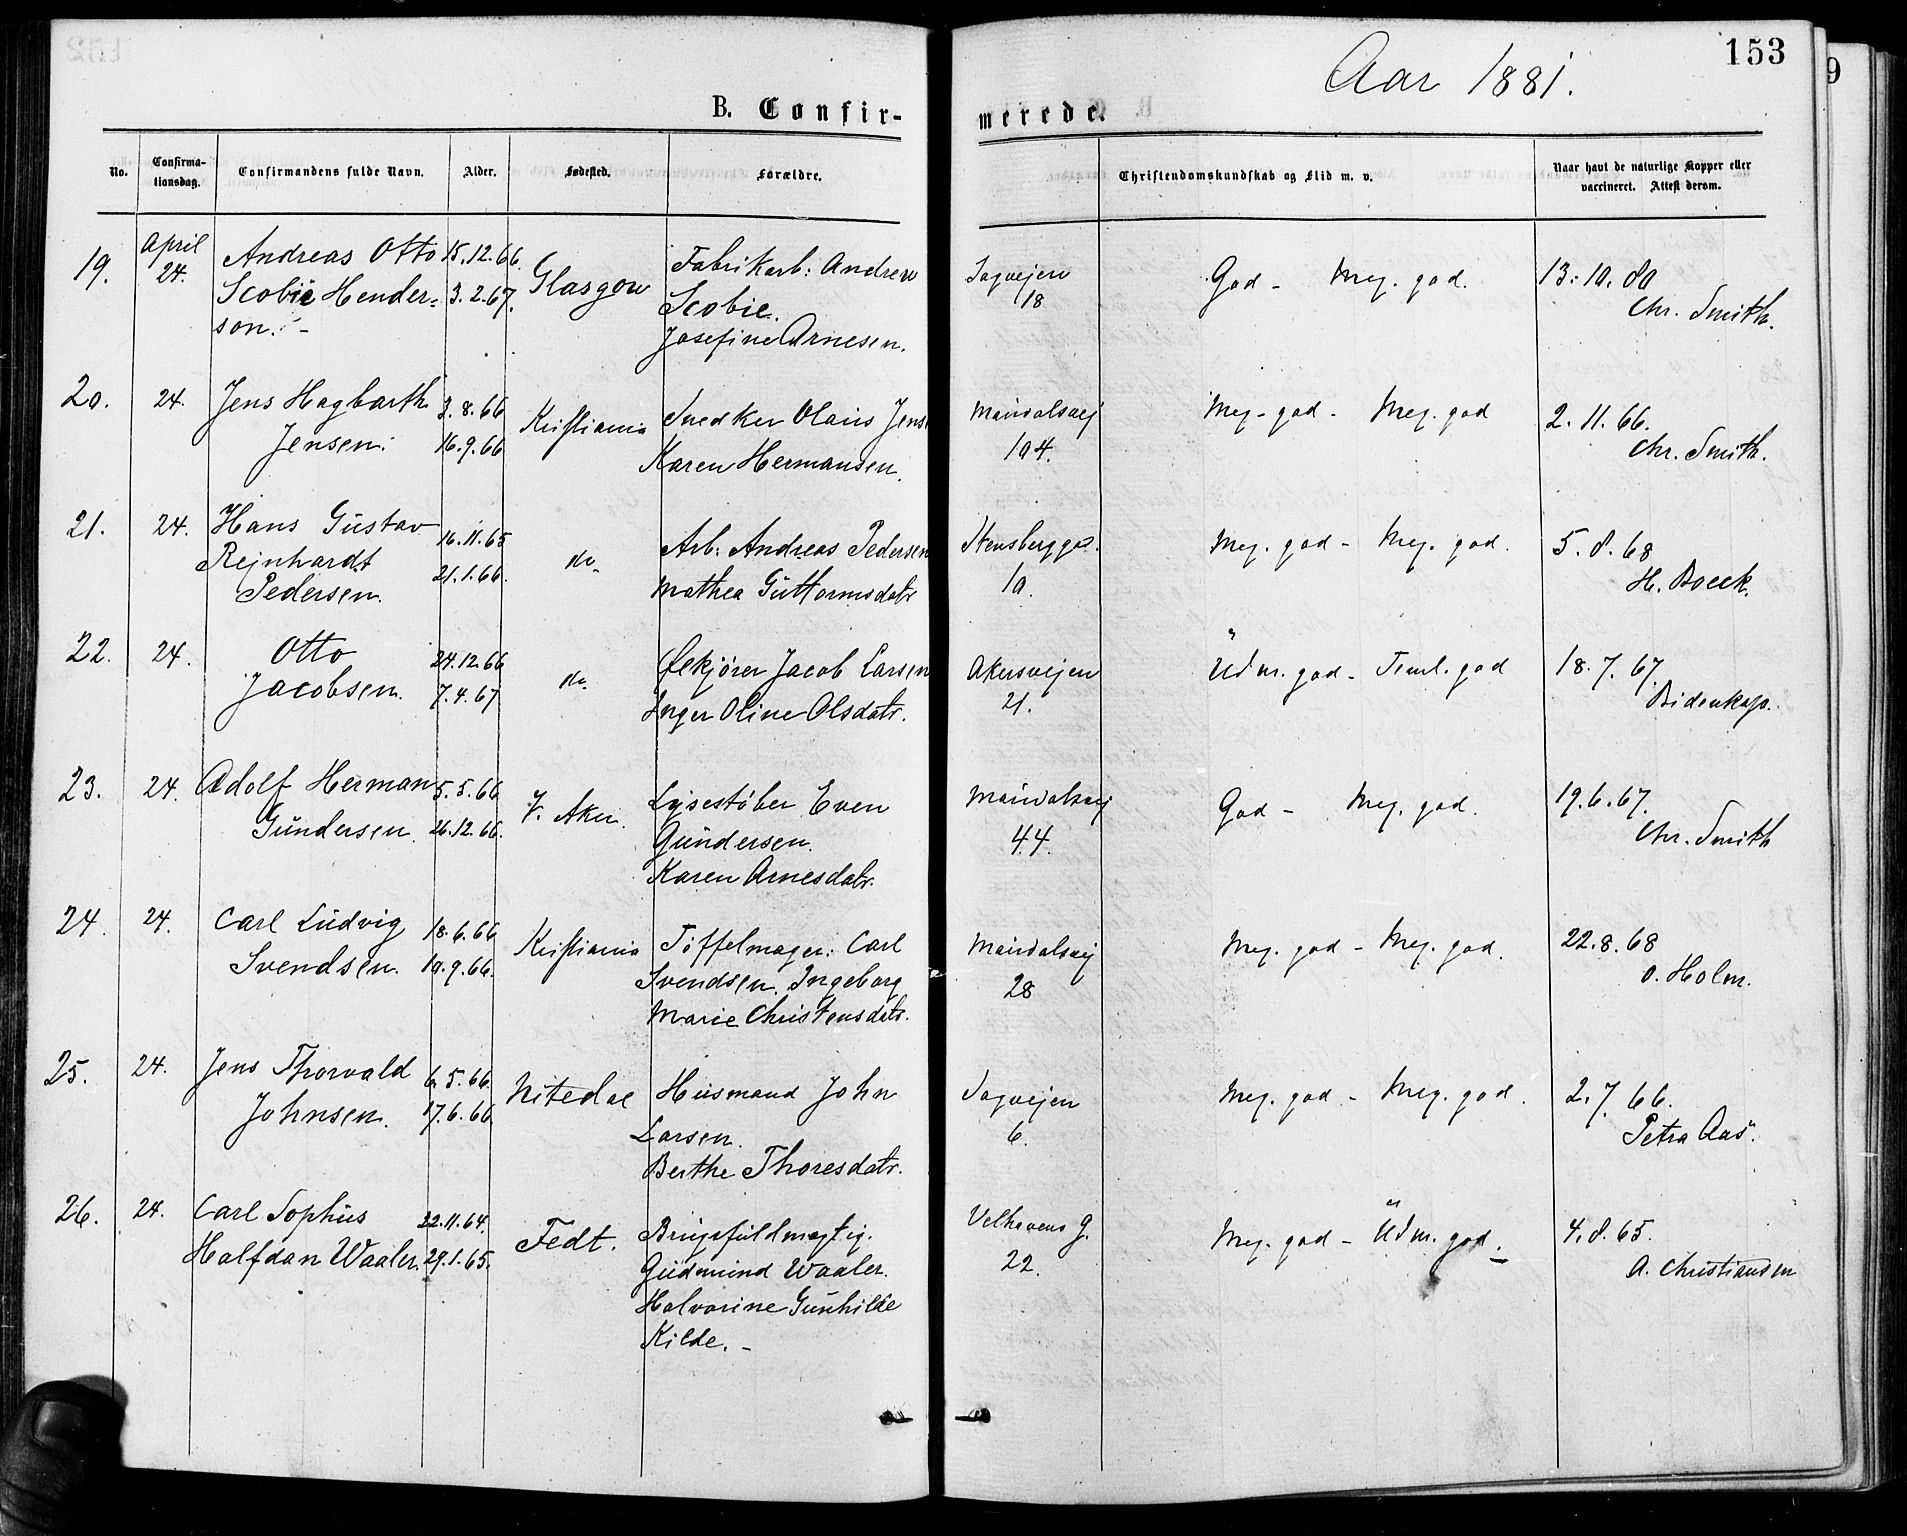 153
Aar 1881.
B. Confir-
merede.
No.
Confirma-
tionsdag.
Confirmandens fulde Navn.
Alder.
Fødested.
Forældre.
Christendomskundskab og Flid m. v.
Naar havt de naturlige Kopper eller
vaccineret. Attest derom.
19. April 24. Andreas Otto 15.12.66. Glasgow Fabrikarb: Andrew Sagvejen God - Meg. god. 13.10.80
Scobie Hender= 3.2.67. Scobie. 18 Chr. Smith.
son. - Josefine Arnesen.
20. 24. Jens Hagbarth 3.8.66 Kristiania Snedker Olaus Jens Maridalsvej Meg. god - Meg. god 2.11.66.
Jensen. 16.9.66 Karen Hermansen. 104. Chr. Smith.
21. 24. Hans Gustav 16.11.65 do. Arb: Andreas Pedersen Stensbergga. Meg. god - Meg. god. 5.8.68
Rejnhardt 21.1.66. Mathea Guttormsdatr 10. H. Boeck.
Pedersen.
22. 24. Otto 24.12.66 do. Ølkjører Jacob Larsen Akersvejen Udm. god - Teml. god 18.7.67.
Jacobsen. 7.4.67 Inger Oline Olsdatr. 21. Bidenkap.
23. 24. Adolf Herman 5.5.66 V. Aker. Lysestøber Even Maridalsvej God - Meg. god. 19.6.67.
Gundersen. 26.12.66. Gundersen. 44. Chr. Smith
Karen Arnesdatr.
24. 24. Carl Ludvig 18.6.66 Kristiania Tøffelmager: Carl Maridalsvej Meg. god - Meg. god. 22.8.68
Svendsen. 19.9.66. Svendsen. Ingeborg 28 O. Holm.
Marie Christensdatr.
25. 24. Jens Thorvald 6.5.66. Nitedal Husmand John Sagvejen Meg. god - Meg. god. 2.7.66.
Johnsen. 17.6.66 Larsen. 6. Petra Aas.
Berthe Thoresdatr.
26. 24. Carl Sophus 22.11.64. Fedt. Brugsfuldmægtig. Velhavens G. Meg. god - Udm. god. 4.8.65.
Halfdan Waaler. 29.1.65. Gudmund Waaler. 22. A. Christiansen
Halvorine Gunhilde
Kilde. -